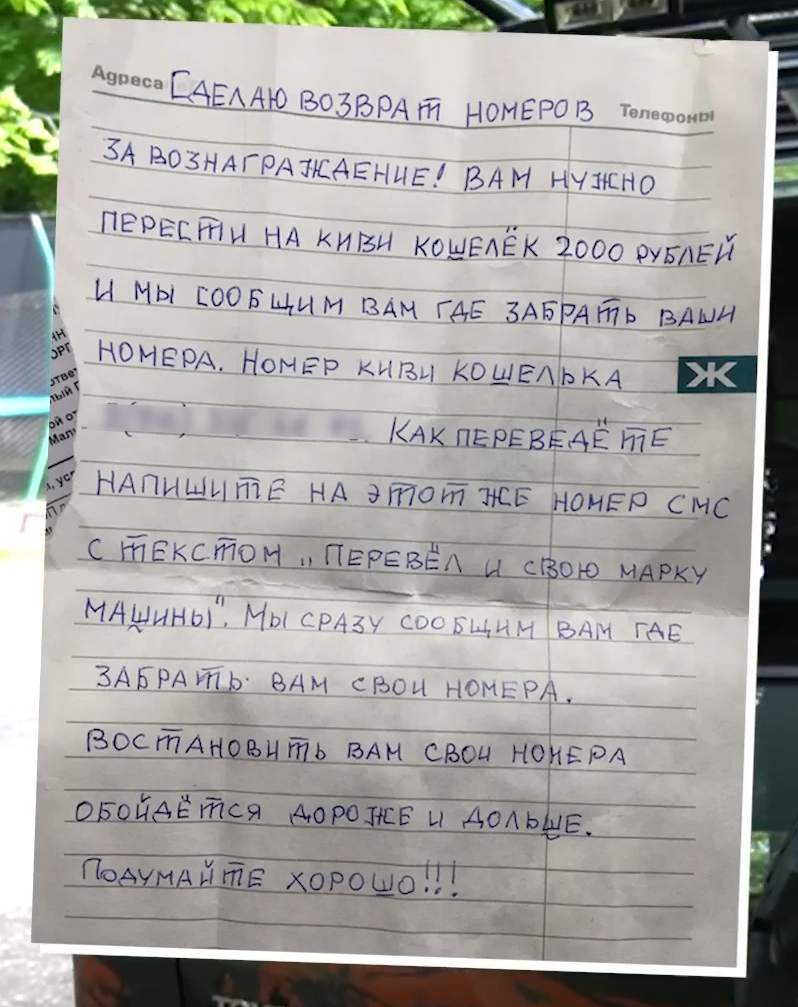 Адреса СДЕЛАЮ ВОЗВРАТ НОМЕРОВ Телефоны
ЗА ВОЗНАГРАЖДЕНИЕ! ВАМ НУЖНО
ПЕРЕСТИ НА КИВИ КОШЕЛЁК 2000 РУБЛЕЙ
И МЫ СООБЩИМ ВАМ ГДЕ ЗАБРАТЬ ВАШИ
НОМЕРА. НОМЕР КИВИ КОШЕЛЬКА
Ж
КАК ПЕРЕВЕДЁТЕ
НАПИШИТЕ НА ЭТОТ ЖЕ НОМЕР СМС
С ТЕКСТОМ „ПЕРЕВЁЛ И СВОЮ МАРКУ
МАШИНЫ". МЫ СРАЗУ СООБЩИМ ВАМ ГДЕ
ЗАБРАТЬ ВАМ СВОИ НОМЕРА.
ВОСТАНОВИТЬ ВАМ СВОИ НОМЕРА
ОБОЙДЁТСЯ ДОРОЖЕ И ДОЛЬШЕ.
ПОДУМАЙТЕ ХОРОШО!!!